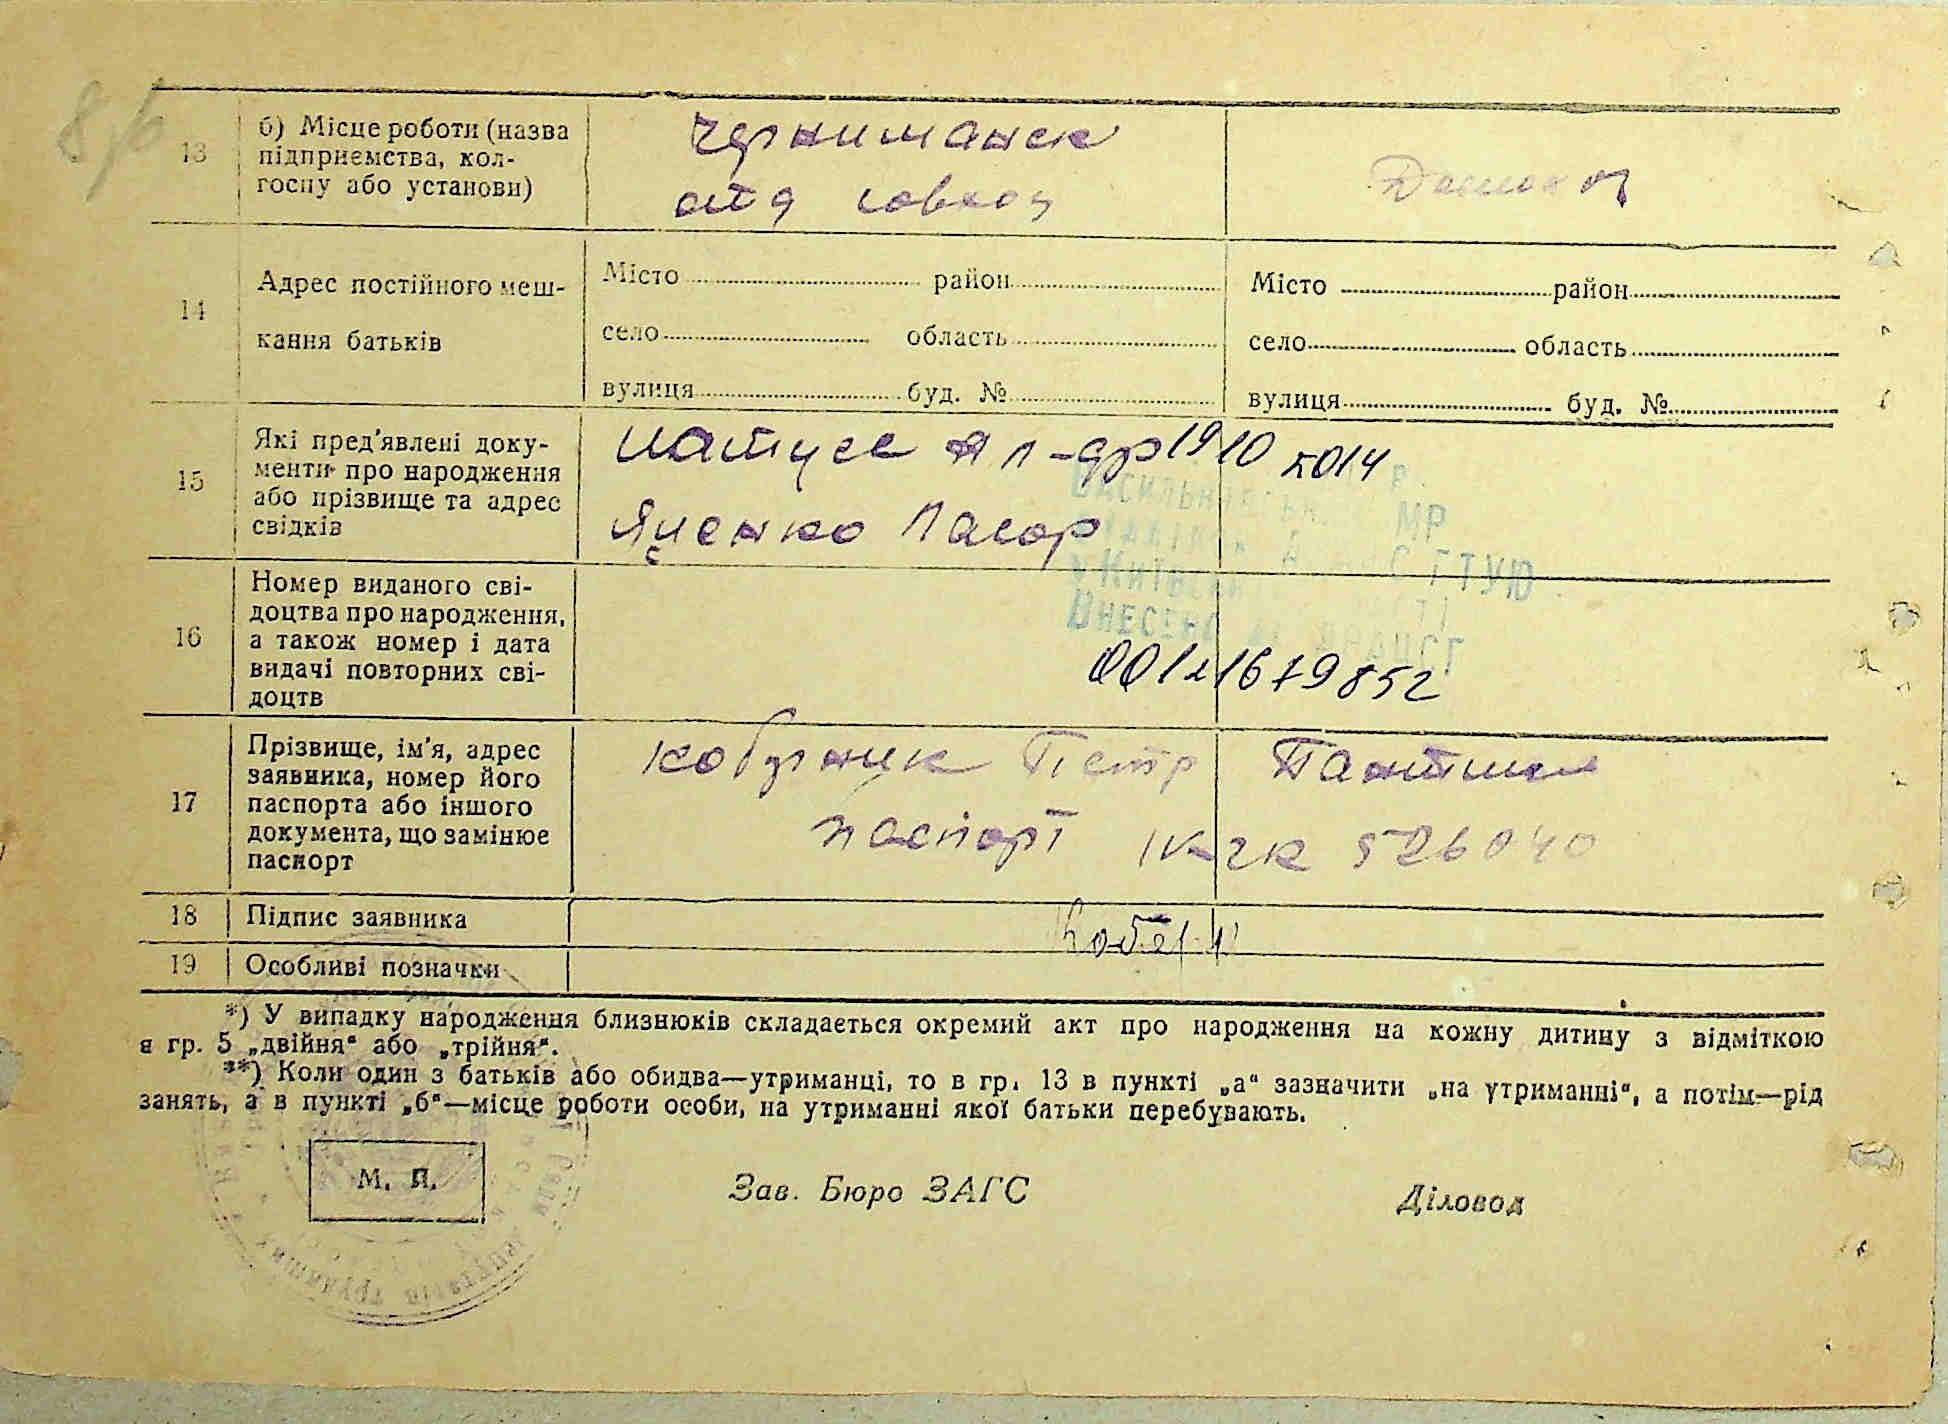 13
б) Місце роботи (назва
підприємства, кол-
госпу або установи)
14
Адрес постійного меш-
кання батьків
Місто район
село область
вулиця буд. №
Місто район
село область
вулиця буд. №
15
Які пред'явлені доку-
менти про народження
або прізвище та адрес
свідків
1910 5014
Яценко
МР
ГТУЮ
16
Номер виданого сві-
доцтва про народження,
а також номер і дата
видачі повторних сві-
доцтв
17
Прізвище, ім'я, адрес
заявника, номер його
паспорта або іншого
документа, що замінює
паспорт
Петр
паспорт 526040
18
Підпис заявника
19
Особливі позначки
*) У випадку народження близнюків складається окремий акт про народження на кожну дитину з відміткою
в гр. 5 „двійня“ або „трійня“.
**) Коли один з батьків або обидва—утриманці, то в гр. 13 в пункті „а“ зазначити „на утриманні“, а потім—рід
занять, а в пункті „б“—місце роботи особи, на утриманні якої батьки перебувають.
М. П.
Зав. Бюро ЗАГС
Діловод